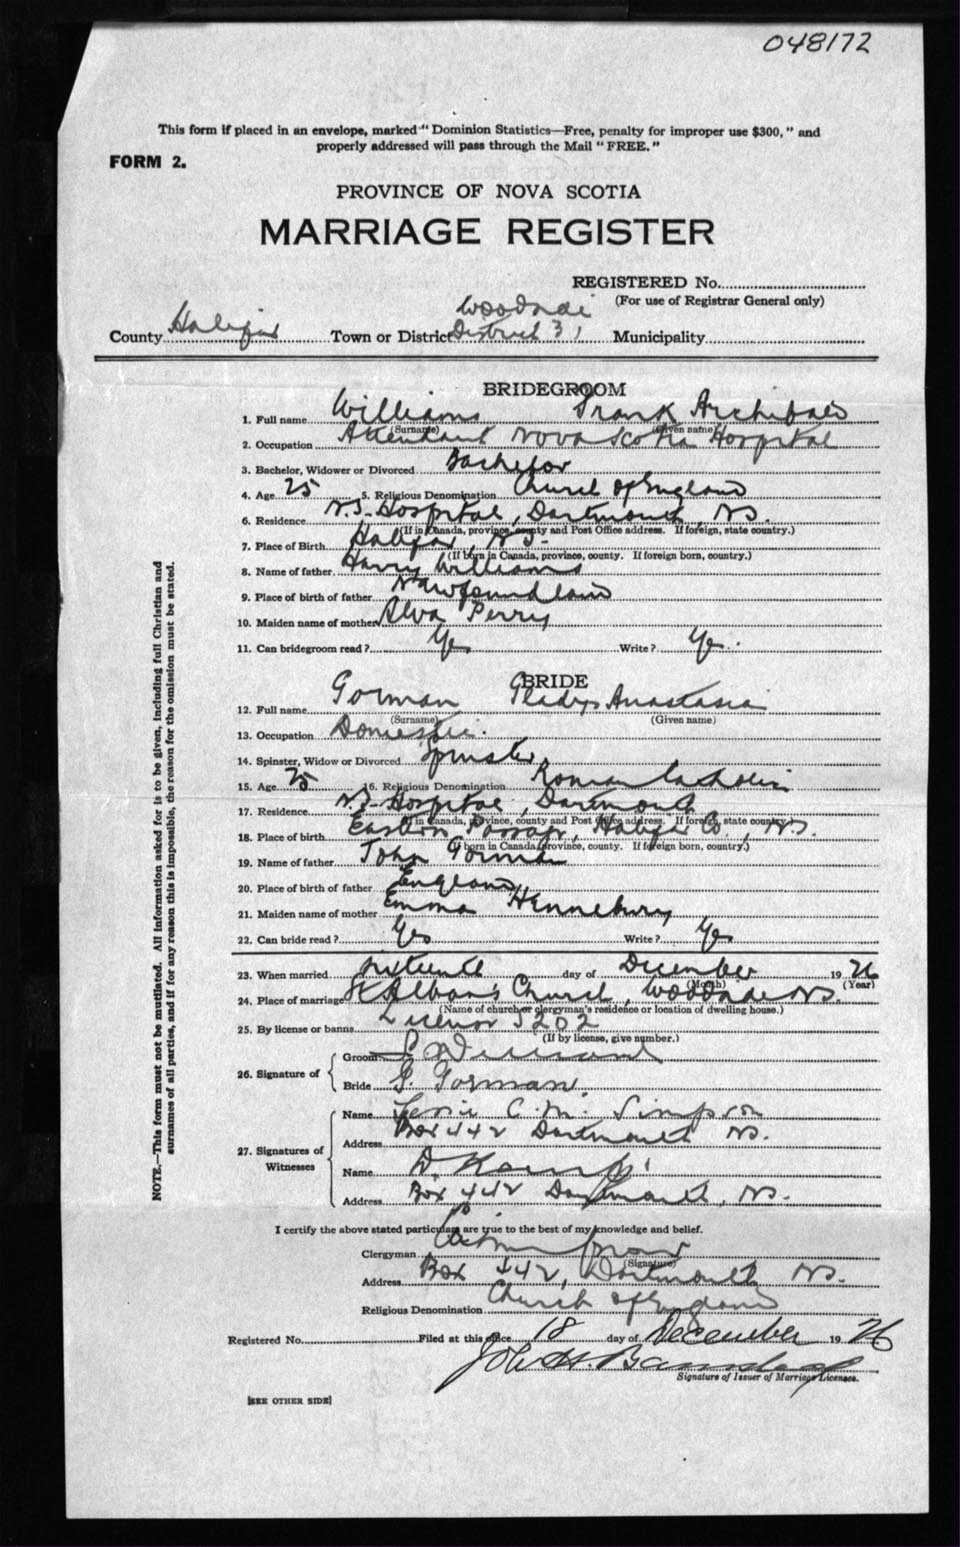 048172
This form if placed in an envelope, marked "Dominion Statistics—Free, penalty for improper use $300," and
properly addressed will pass through the Mail "FREE."
FORM 2.
PROVINCE OF NOVA SCOTIA
MARRIAGE REGISTER
REGISTERED No.
(For use of Registrar General only)
County Halifax Town or District Woodside District 31 Municipality
BRIDEGROOM
1. Full name Williams Frank Archibald
(Surname) (Given name)
2. Occupation Attendant Nova Scotia Hospital
3. Bachelor, Widower or Divorced Bachelor
4. Age 25 5. Religious Denomination Church of England
6. Residence N.S. Hospital, Dartmouth, N.S.
(If in Canada, province, county and Post Office address. If foreign, state country.)
7. Place of Birth Halifax, N.S.
(If born in Canada, province, county. If foreign born, country.)
8. Name of father Harry Williams
9. Place of birth of father Newfoundland
10. Maiden name of mother Alva Perry
11. Can bridegroom read? Yes Write? Yes
BRIDE
12. Full name Gorman Gladys Anastasia
(Surname) (Given name)
13. Occupation Domestic
14. Spinster, Widow or Divorced Spinster
15. Age 25 16. Religious Denomination Roman Catholic
17. Residence N.S. Hospital, Dartmouth
(If in Canada, province, county and Post Office address. If foreign, state country.)
18. Place of birth Eastern Passage, Halifax Co., N.S.
(If born in Canada, province, county. If foreign born, country.)
19. Name of father John Gorman
20. Place of birth of father England
21. Maiden name of mother Emma Hennebury
22. Can bride read? Yes Write? Yes
23. When married sixteenth day of December 19 26
(Month) (Year)
24. Place of marriage St Alban's Church, Woodside N.S.
(Name of church or clergyman's residence or location of dwelling house.)
25. By license or banns License 5202
(If by license, give number.)
26. Signature of Groom Williams
Bride G. Gorman
27. Signatures of Witnesses Name C. M. Simpson
Address Box 442 Dartmouth N.S.
Name
Address Box 442 Dartmouth, N.S.
I certify the above stated particulars are true to the best of my knowledge and belief.
Clergyman
(Signature)
Address Box 442, Dartmouth N.S.
Religious Denomination Church of England
Registered No. Filed at this office 18 day of December 19 26
Signature of Issuer of Marriage Licenses.
[SEE OTHER SIDE]
NOTE.—This form must not be mutilated. All information asked for is to be given, including full Christian and
surnames of all parties, and if for any reason this is impossible, the reason for the omission must be stated.